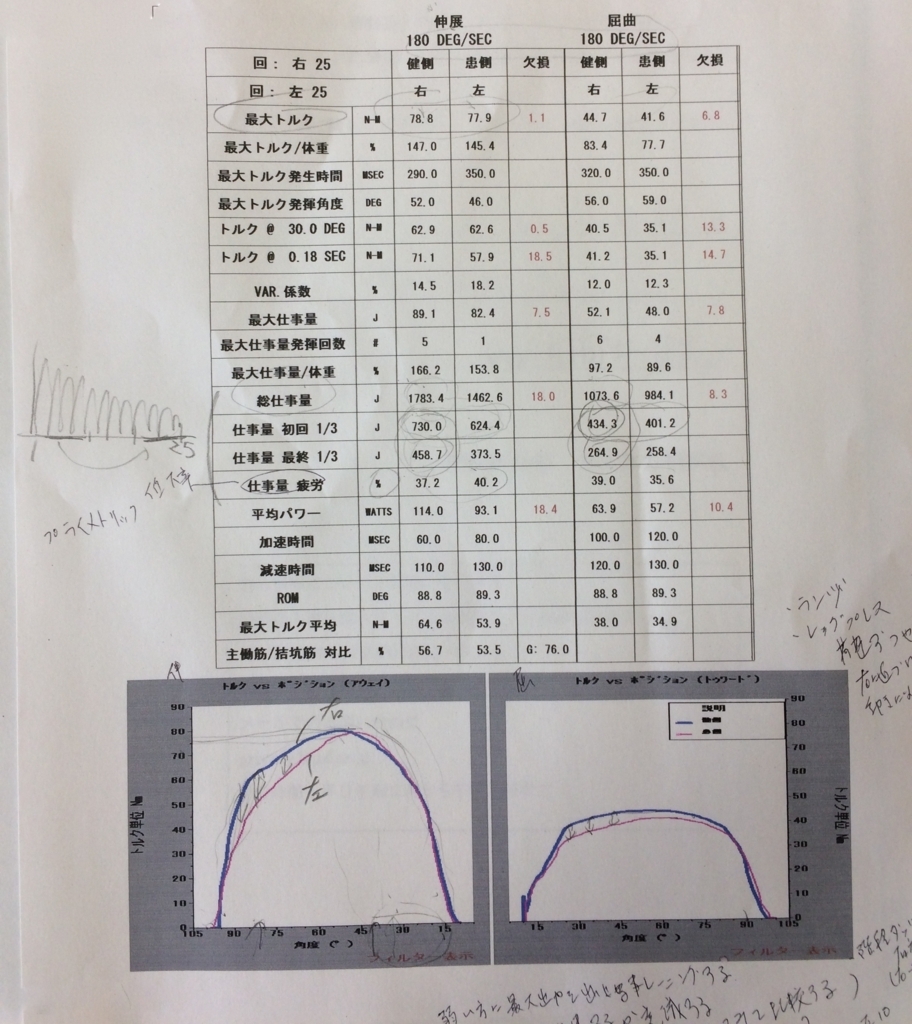 伸展 屈曲
180 DEG/SEC 180 DEG/SEC
回: 右 25 健側 患側 欠損 健側 患側 欠損
回: 左 25 右 左 右 左
最大トルク N-M 78.8 77.9 1.1 44.7 41.6 6.8
最大トルク/体重 % 147.0 145.4 83.4 77.7
最大トルク発生時間 MSEC 290.0 350.0 320.0 350.0
最大トルク発揮角度 DEG 52.0 46.0 56.0 59.0
トルク @ 30.0 DEG N-M 62.9 62.6 0.5 40.5 35.1 13.3
トルク @ 0.18 SEC N-M 71.1 57.9 18.5 41.2 35.1 14.7
VAR.係数 % 14.5 18.2 12.0 12.3
最大仕事量 J 89.1 82.4 7.5 52.1 48.0 7.8
最大仕事量発揮回数 # 5 1 6 4
最大仕事量/体重 % 166.2 153.8 97.2 89.6
総仕事量 J 1783.4 1462.6 18.0 1073.6 984.1 8.3
仕事量 初回 1/3 J 730.0 624.4 434.3 401.2
仕事量 最終 1/3 J 458.7 373.5 264.9 258.4
仕事量 疲労 % 37.2 40.2 39.0 35.6
平均パワー WATTS 114.0 93.1 18.4 63.9 57.2 10.4
加速時間 MSEC 60.0 80.0 100.0 120.0
減速時間 MSEC 110.0 130.0 120.0 130.0
ROM DEG 88.8 89.3 88.8 89.3
最大トルク平均 N-M 64.6 53.9 38.0 34.9
主働筋/拮抗筋 対比 % 56.7 53.5 G: 76.0
25
プライメトリック
・ランジ
・レッグプレス
伸 トルク vs ポジション (アウェイ)
屈 トルク vs ポジション (トゥワード)
説明
健側
患側
右
左
90 80 70 60 50 40 30 20 10 0
トルク単位 Nm
105 90 75 60 45 30 15
角度(°)
フィルター表示
90 80 70 60 50 40 30 20 10 0
トルク単位 Nm
15 30 45 60 75 90 105
角度(°)
フィルター表示